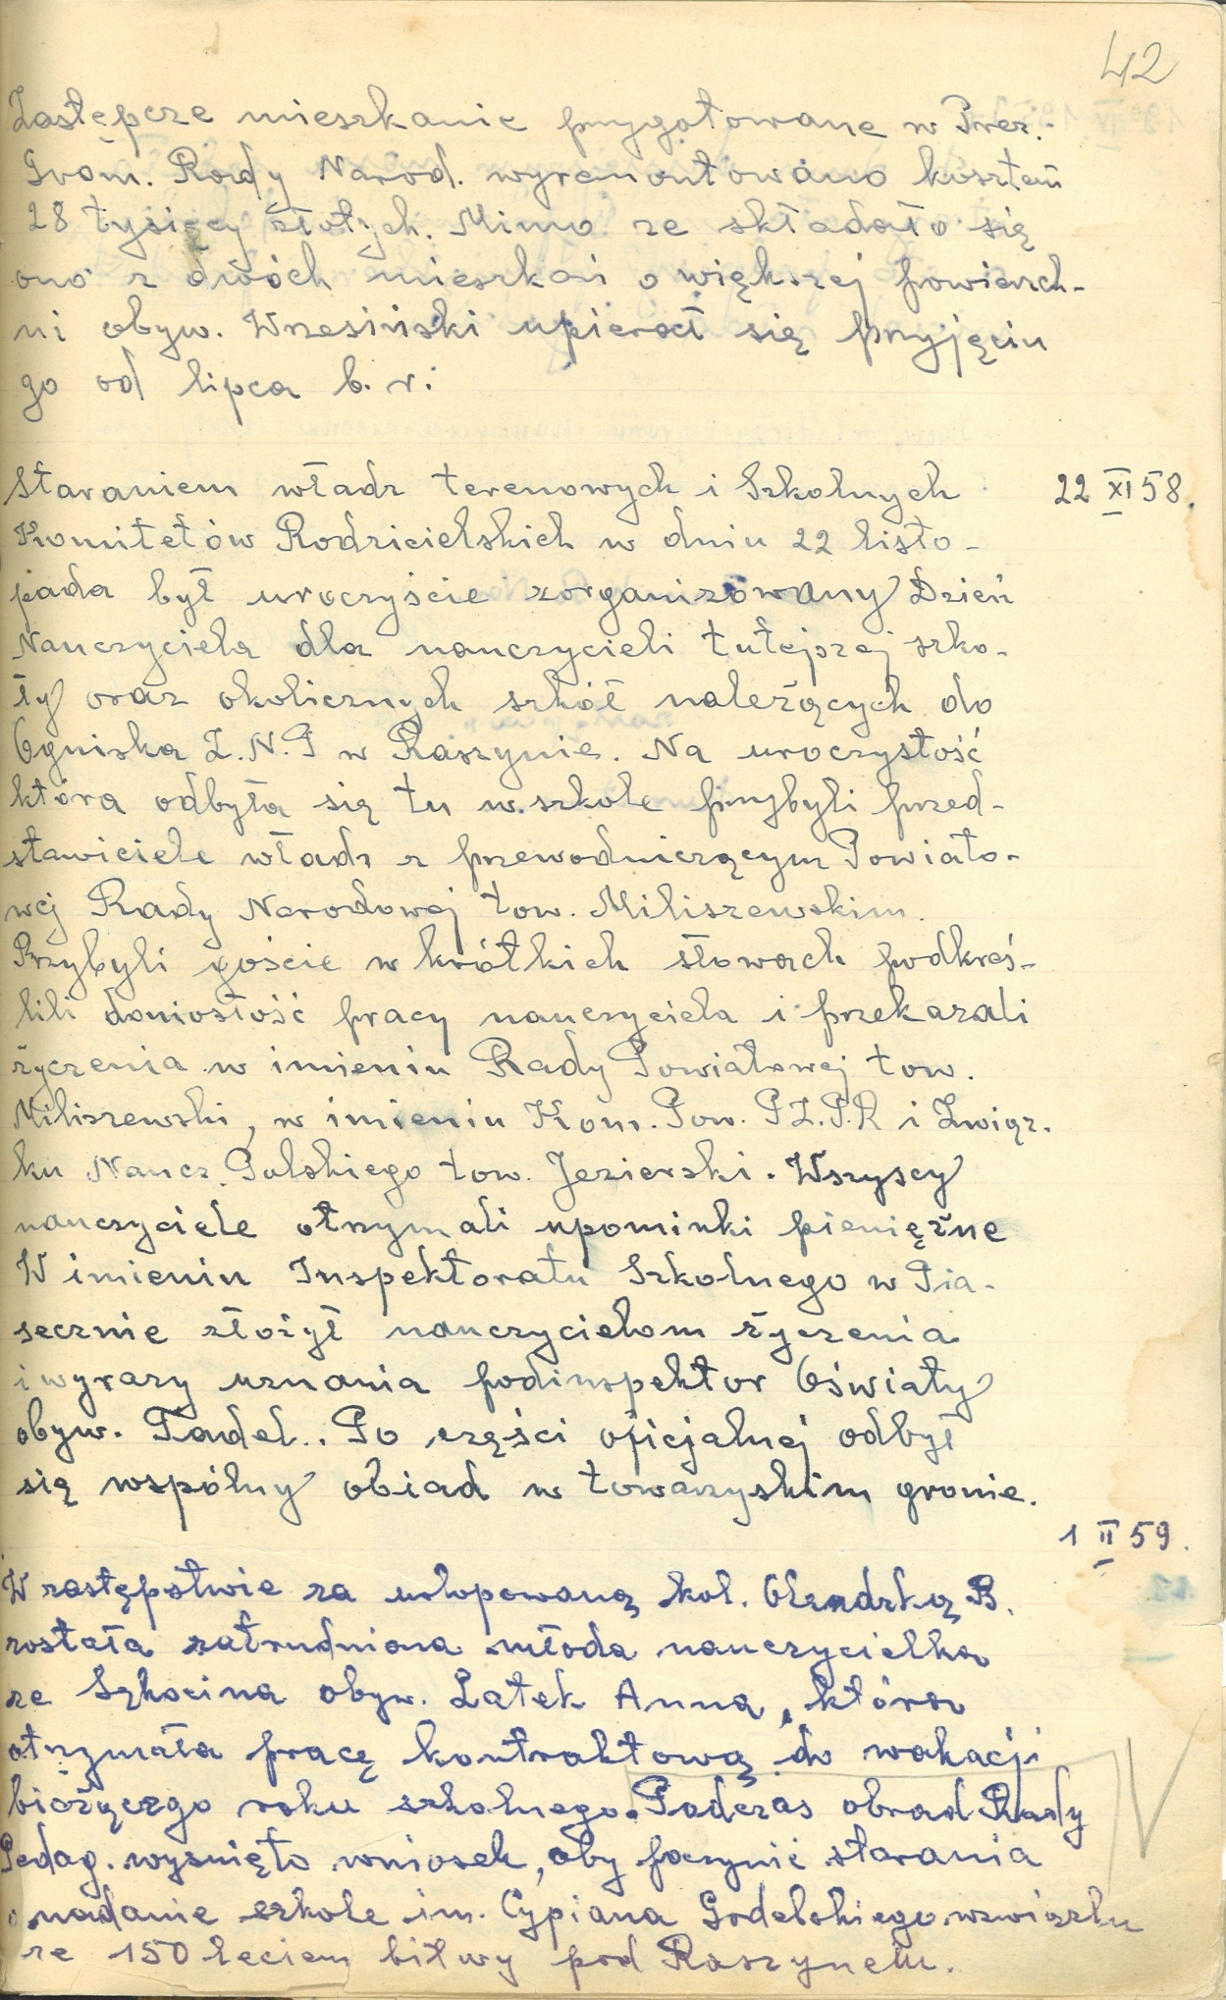 42
Zastępcze mieszkanie przygotowane w Prez.
Grom. Rady Narod. wyremontowano kosztem
28 tysięcy złotych. Mimo ze składało się
ono z dwóch mieszkań o większej powierzch-
ni obyw. Wrzesiński upierał się przyjęciu
go od lipca b. r.
Staraniem władz terenowych i Szkolnych
22 XI 58.
Komitetów Rodzicielskich w dniu 22 listo-
pada był uroczyście zorganizowany Dzień
Nauczyciela dla nauczycieli tutejszej szko-
ły oraz okolicznych szkół należących do
Ogniska Z.N.P w Raszynie. Na uroczystość
która odbyła się tu w szkole przybyli przed-
stawiciele władz z przewodniczącym Powiato-
wej Rady Narodowej tow. Miliszewskim.
Przybyli goście w krótkich słowach podkreś-
lili doniosłość pracy nauczyciela i przekazali
życzenia w imieniu Rady Powiatowej tow.
Miliszewski, w imieniu Kom. Pow. PZ.P.R i Związ-
ku Naucz. Polskiego tow. Jezierski. Wszyscy
nauczyciele otrzymali upominki pieniężne
W imieniu Inspektoratu Szkolnego w Pia-
secznie złożył nauczycielom życzenia
i wyrazy uznania podinspektor Oświaty
obyw. Fadel.. Po części oficjalnej odbył
się wspólny obiad w towarzyskim gronie.
1 II 59.
W zastępstwie za urlopowaną kol. Olendzką B.
została zatrudniona młoda nauczycielka
ze obyw. Latek Anna, która
otrzymała pracę kontraktową do wakacji
bieżącego roku szkolnego. Podczas obrad Rady
Pedag. wysnięto wniosek, aby poczynić starania
o nadanie szkole im. Cypiana Godelskiego w związku
ze 150 leciem bitwy pod Raszynem.